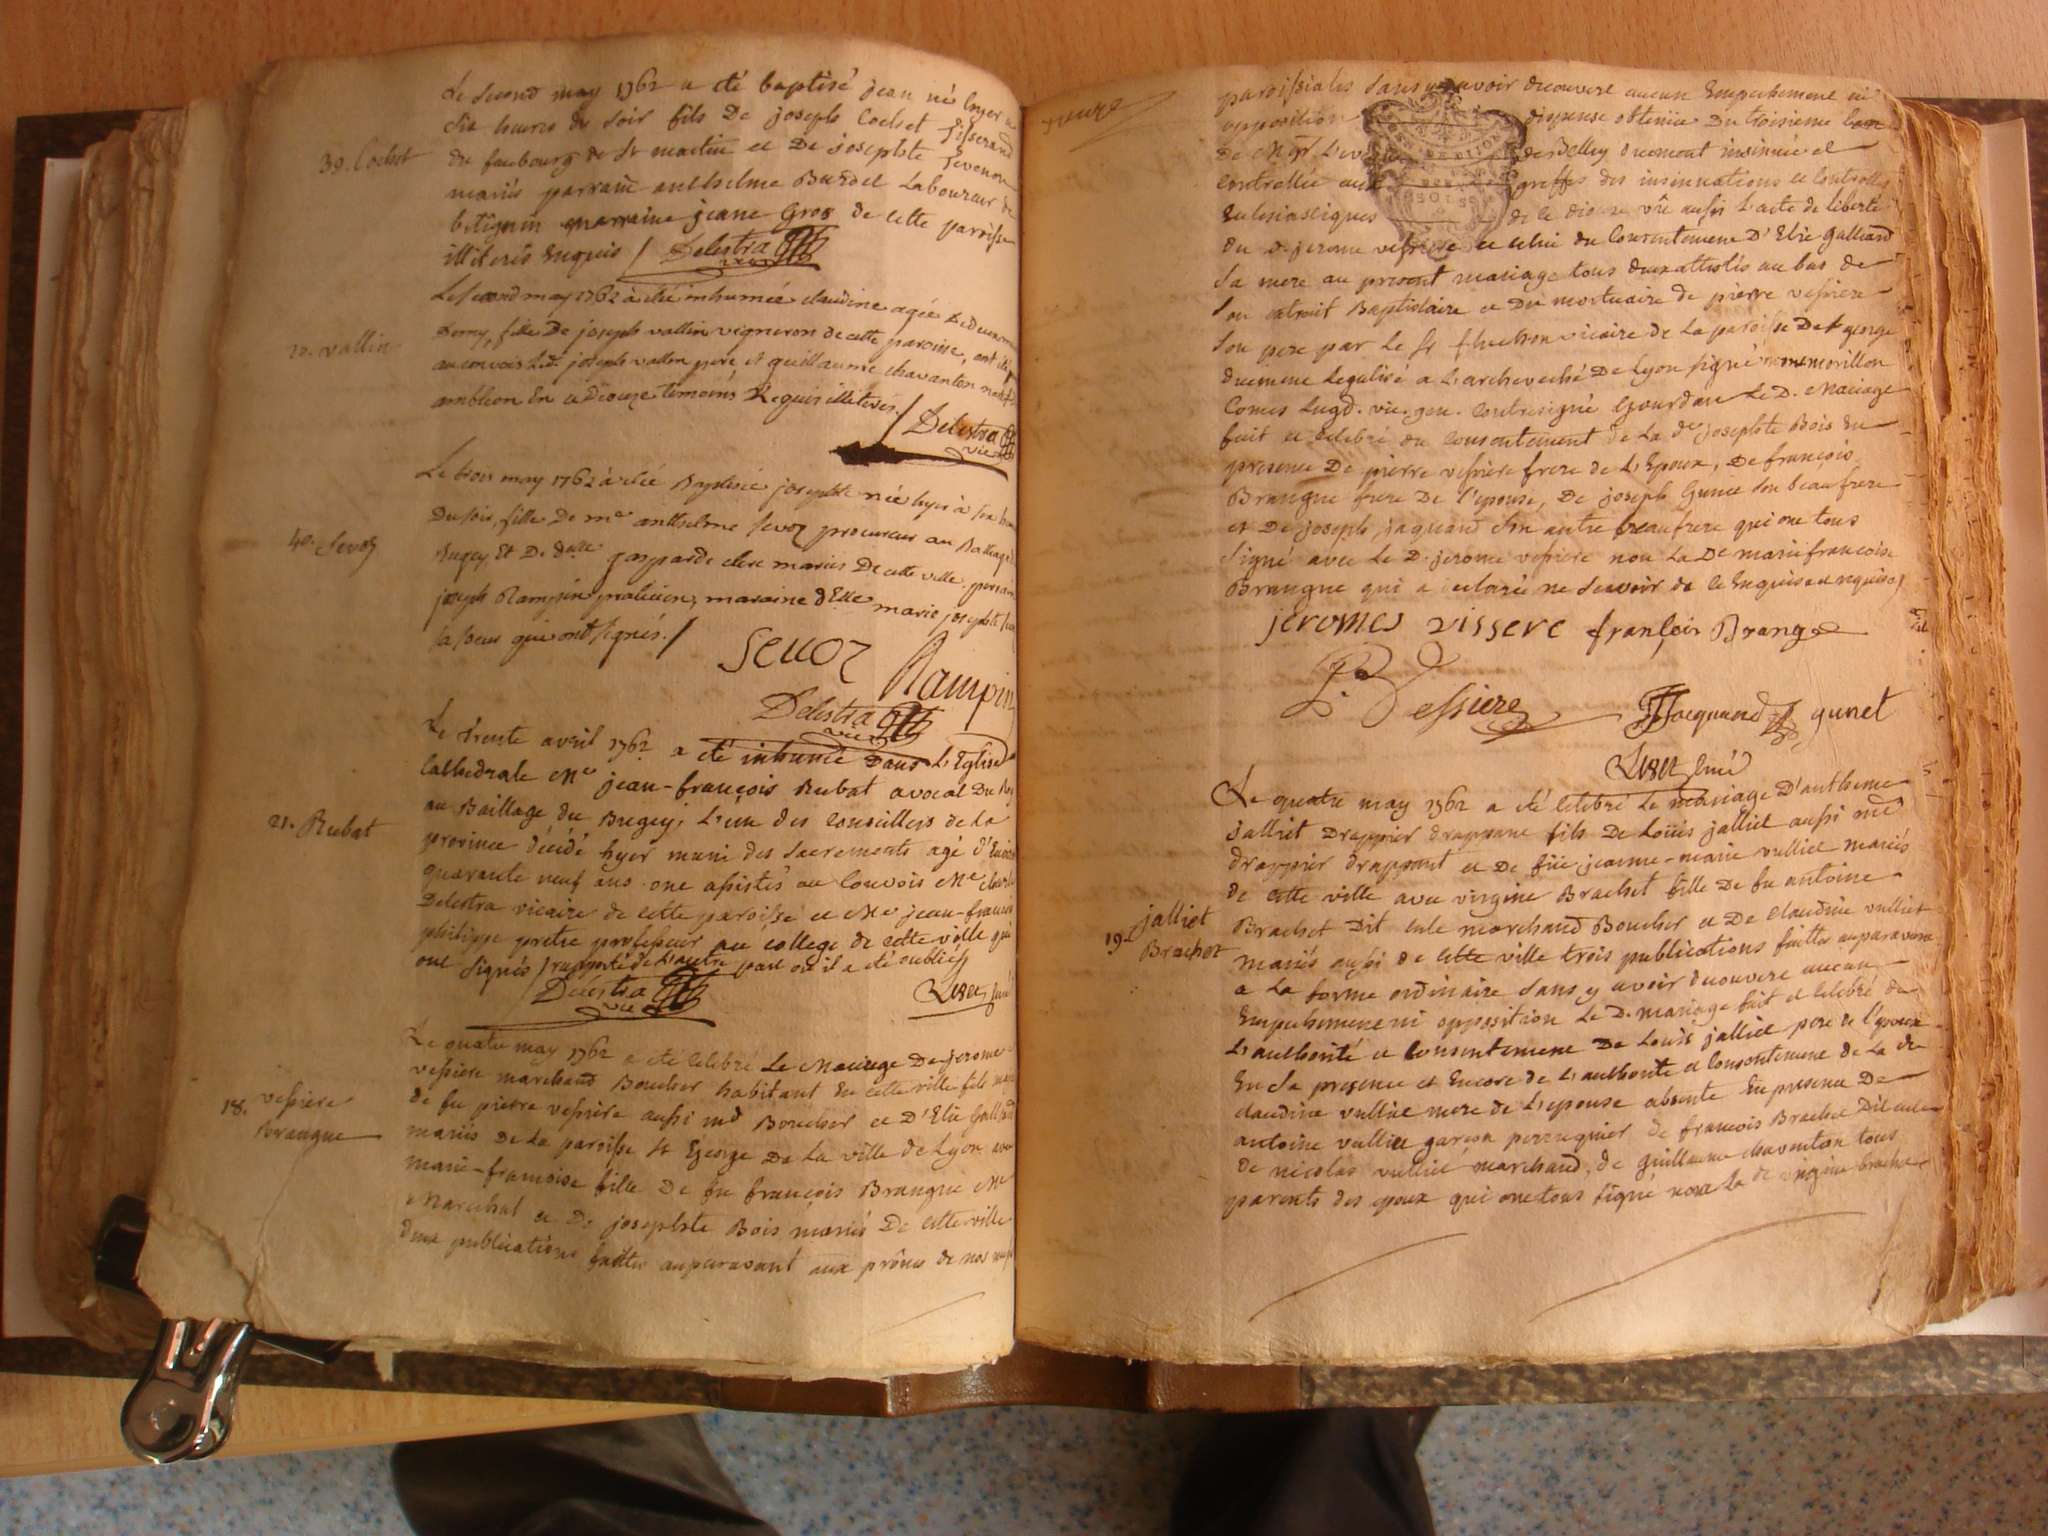 Le second may 1762 a été baptisé jean né hyer a
six heures du soir fils De joseph Cochet Tisserand
39. Cochet
du faubourg de St martin et De josephte Tevenon
mariés parrain anthelme Burdet Laboureur de
betignin marraine jeane Gros de cette paroisse
illiterés Enquis / Delestra
vic
Le second may 1762 à été inhumée claudine agée de deux ans
20. vallin
Demy, fille De joseph vallin vigneron de cette paroisse, ont été
au convois Led. joseph vallin pere et guillaume chavanton
ambléon En ce Dioceze temoins Requis illiterés. /
Delestra
vic
Le trois may 1762 à été Baptisée josephte née hyer à six heures
Du soir, fille De me anthelme Sevoz procureur au Balliage
40. Sevoz
Bugey Et De dlle gasparde clerc mariés De cette ville parrain
joseph Rampin praticien, maraine dElle marie josephte
sa soeur qui ont signés. /
Sevoz
Rampin
Delestra
vic
Le trente avril 1762 a été inhumé dans L'Eglise
Cathedrale Me jean-françois Rubat avocat Du Roy
au Baillage du Bugey, L'un des Conseillers de La
21. Rubat
province décédé hyer muni des Sacrements agé d'Environ
quarante neuf ans ont assistés au Convois Me
Delestra vicaire de cette paroisse et Me jean-francois
philippe pretre professeur au college de cette ville qui
ont signés / rapporté de L'autre part ou il a été oublié /
Delestra
vic
Rezet curé
Le quatre may 1762 a été célebré Le Mariage De jerome
vessiere marchand Boucher habitant En cette ville fils
18. vessiere
brangue
de fu pierre vessiere aussi md Boucher et D'Elie Galliard
mariés De La paroisse St George De La ville de Lyon avec
marie-francoise fille De fu françois Brangue Me
Marechal et De josephte Bois mariés De cette ville
deux publications faittes auparavant aux prônes de nos
paroissiales sans y avoir decouvert aucun Empechement ni
opposition dispense obtenüe Du troisieme ban
De Mgr L'ev de Belley duement insinuée et
Controllée aux greffes des insinuations et Controlles
Eclesiastiques de ce dioceze vû aussi L'acte de liberté
du D. jerome vessiere et celui du Consentement D'Elie Galliard
Sa mere au present mariage tous deux attestés au bas de
Son extrait Baptistaire et Du mortuaire de pierre vessiere
Son pere par Le Sr vicaire de La paroisse De St george
duement Legalisé a L'archeveché De Lyon signé montmorillon
Comes Lugd. vic. gen. Contresigné Gourdan Le D. Mariage
fait et celebré du Consentement de La de josephte Bois En
presence De pierre vessiere frere de L'Epoux, De françois
Brangue frere De l'epouse, De joseph Gunet Son beaufrere
et De joseph jaquand Son autre beaufrere qui ont tous
Signé avec Le D. jerome vessiere non La De marie francoise
Brangue qui a declaré ne Scavoir de ce Enquise et requise /
jeromes vissere françois Brangue
P. Vessiere JJacquand gunet
Rezet curé
Le quatre may 1762 a été célebré Le mariage D'anthelme
jalliet Drappier drappant fils De Loüis jalliet aussi me
drappier drappant et De füe jeanne-marie vulliet mariés
de cette ville avec virgine Brachet fille De fu antoine
19. jalliet
Brachet
Brachet Dit cule marchand Boucher et De Claudine vulliet
mariés aussi de cette ville trois publications faittes auparavant
a La forme ordinaire Sans y avoir decouvert aucun
Empechement ni opposition Le D. mariage fait et celebré de
L'authorité et Consentement De Loüis jalliet pere de l'epoux
En Sa presence et Encore de L'authorité et Consentement de La de
claudine vulliet mere de L'epouse absente En presence De
antoine vulliet garçon perruquier, de francois Brachet Dit cule
de nicolas vulliet marchand, de guillaume chavanton tous
parents des epoux qui ont tous signé non La de virgine brachet